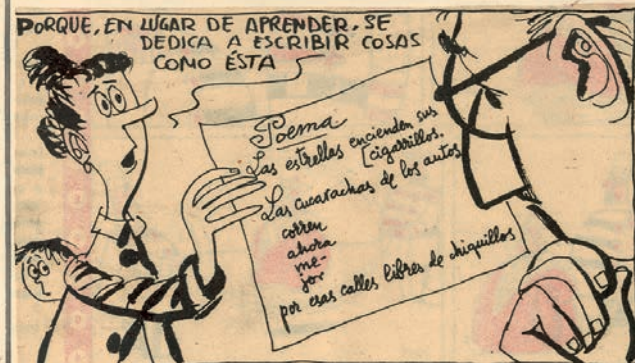 PORQUE, EN LUGAR DE APRENDER, SE
DEDICA A ESCRIBIR COSAS
COMO ÉSTA
Poema
Las estrellas encienden sus
[cigarrillos.
Las cucarachas de los autos
corren
ahora
me-
jor
por esas calles libres de chiquillos